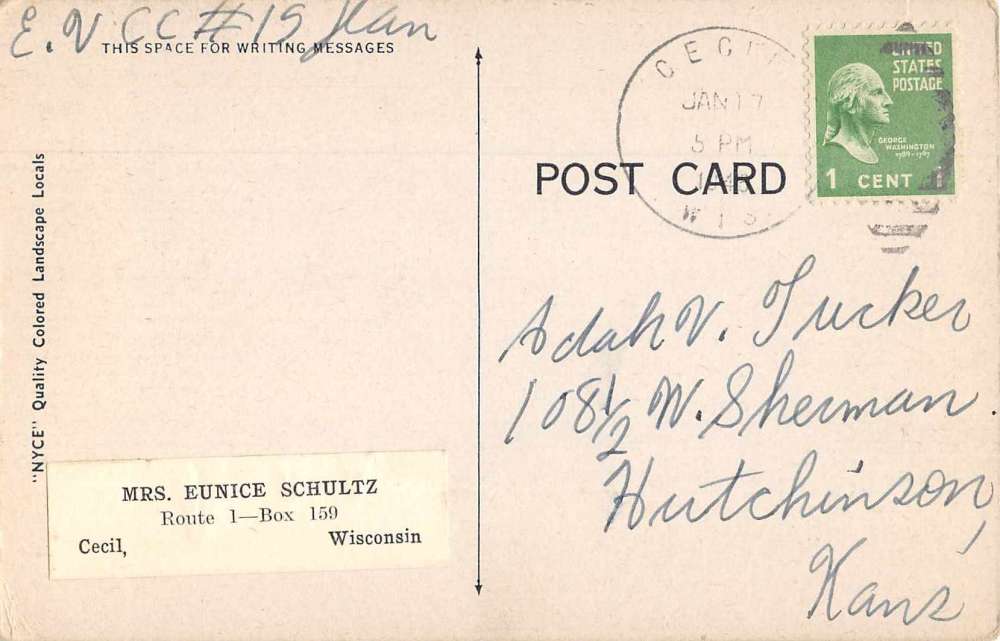 E.V CC #15 Jean
THIS SPACE FOR WRITING MESSAGES
"NYCE" Quality Colored Landscape Locals
MRS. EUNICE SCHULTZ
Route 1—Box 159
Cecil, Wisconsin
CECIL
JAN 17
5 PM
WIS
UNITED
STATES
POSTAGE
GEORGE
WASHINGTON
1789-1797
1 CENT 1
POST CARD
Adah V. Tucker
108 1/2 W. Sherman
Hutchinson,
Kans